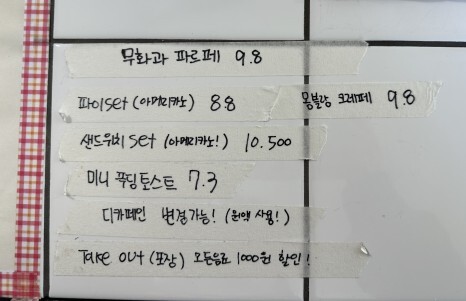 무화과 파르페 9.8
파이set (아메리카노) 8.8
몽블랑 크레페 9.8
샌드위치 set (아메리카노!) 10.500
미니 푹딩토스트 7.3
디카페인 변경가능! (원액 사용!)
Take out (포장) 모든음료 1000원 할인!